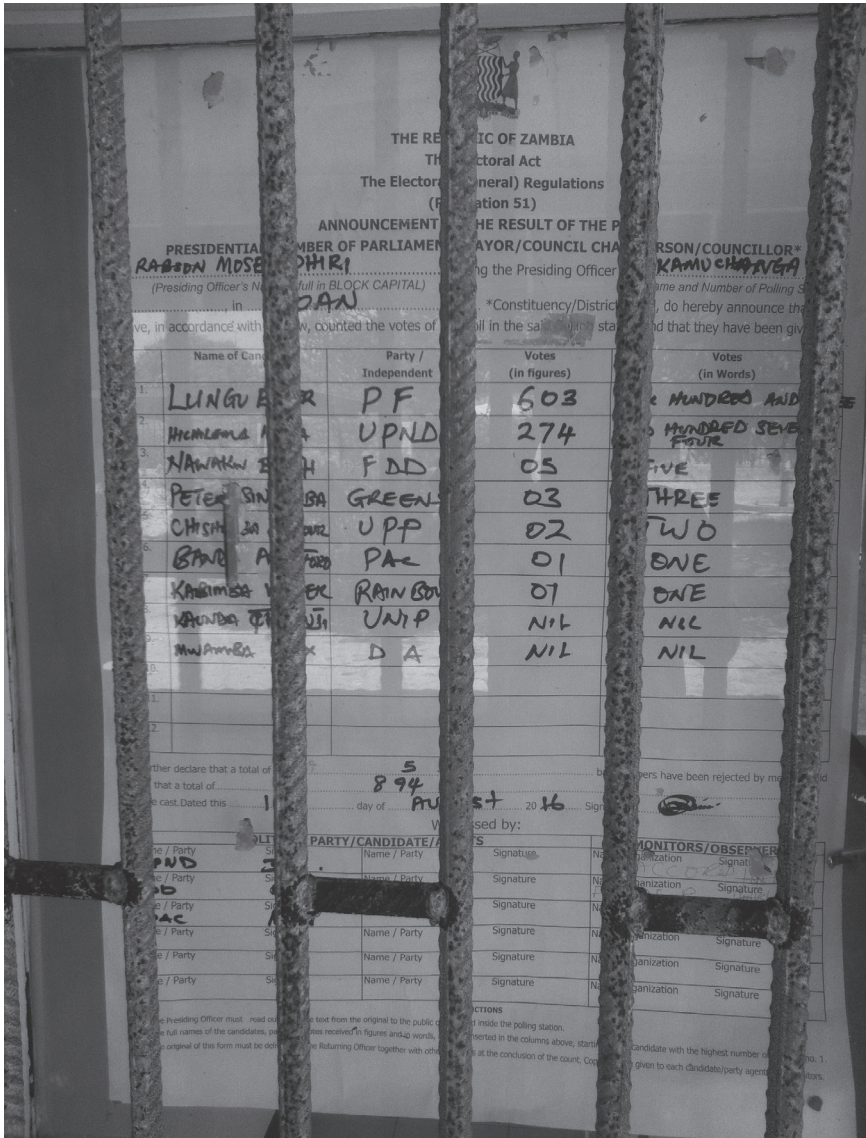 THE RE IC OF ZAMBIA
Th ctoral Act
The Elector neral) Regulations
(R ation 51)
ANNOUNCEMENT HE RESULT OF THE P
PRESIDENTIA MBER OF PARLIAMEN AYOR/COUNCIL CHA ERSON/COUNCILLOR*
RABSON MOSE PHIRI ng the Presiding Officer KAMUCHANGA
(Presiding Officer's N full in BLOCK CAPITAL) ame and Number of Polling S
in OAN *Constituency/District do hereby announce tha
ve, in accordance with w, counted the votes of oll in the sa sta nd that they have been giv
Name of Can Party / Independent Votes (in figures) Votes (in Words)
1. LUNGU E R PF 603 HUNDRED AND
2. HICHILEMA A UPND 274 HUNDRED SEVE FOUR
3. NAWAKW H FDD 05 FIVE
4. PETER SIN BA GREENS 03 THREE
5. CHISH BA UPP 02 TWO
6. BAND A FORD PAC 01 ONE
7. KABIMBA W ER RAINBOW 01 ONE
8. KAUNDA UNIP NIL NIL
9. MWAMBA X DA NIL NIL
10.
1.
2.
rther declare that a total of 5 b pers have been rejected by me
that a total of 894
e cast.Dated this 1 day of AU ST 2016 Sign
W ssed by:
OLIT PARTY/CANDIDATE/A TS MONITORS/OBSERVER
e / Party Si Name / Party Signature Na ganization Signat
PND
e / Party Si Name / Party Signature ganization Signature
DD
e / Party Name / Party Signature
PAC
e / Party Si Name / Party Signature Na ganization Signature
e / Party Si Name / Party Signature Na ganization Signature
e / Party Si Name / Party Signature Na ganization Signature
CTIONS
e Presiding Officer must read ou text from the original to the public inside the polling station.
e full names of the candidates, pa as received in figures and in words, nserted in the columns above, starti candidate with the highest number o no. 1.
original of this form must be deli e Returning Officer together with othe s at the conclusion of the count. Cop given to each candidate/party agent itors.